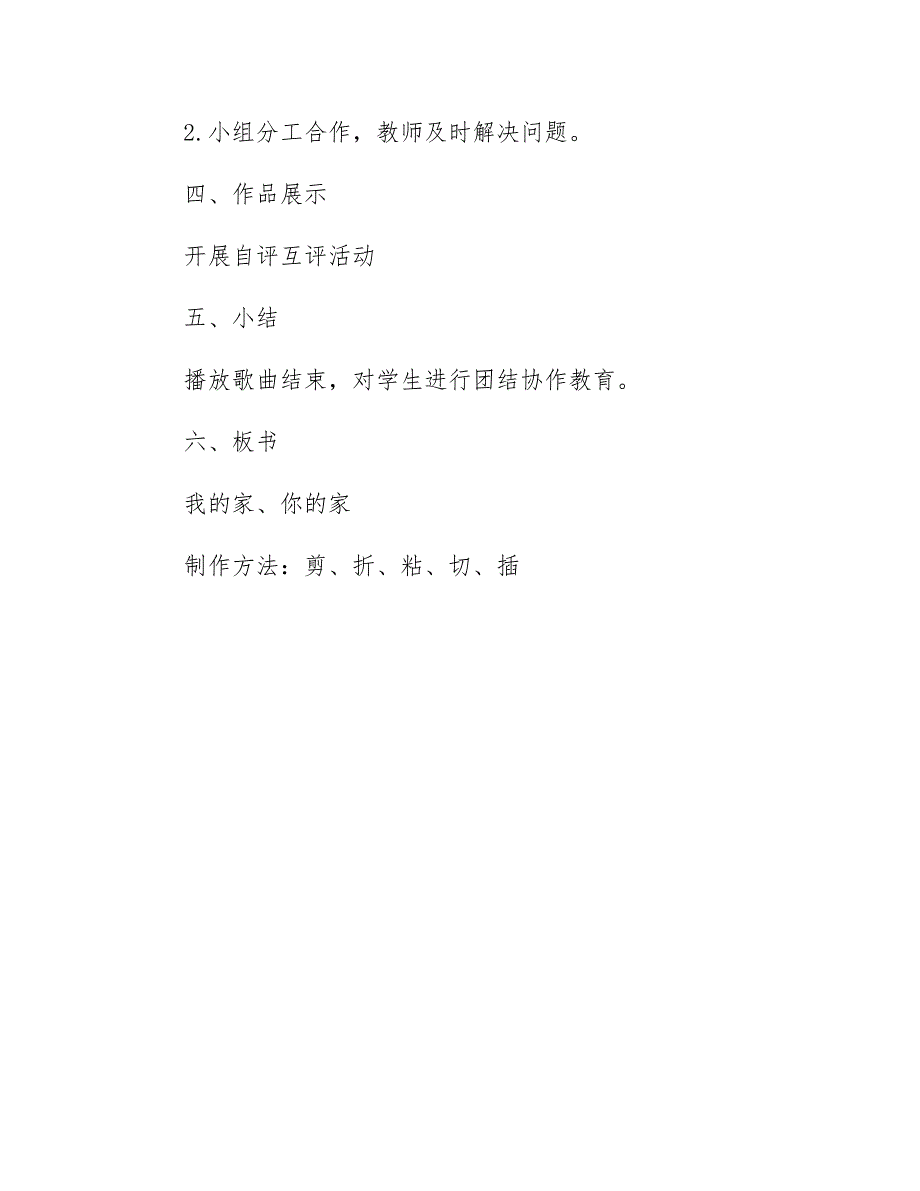 2.小组分工合作，教师及时解决问题。
四、作品展示
开展自评互评活动
五、小结
播放歌曲结束，对学生进行团结协作教育。
六、板书
我的家、你的家
制作方法：剪、折、粘、切、插